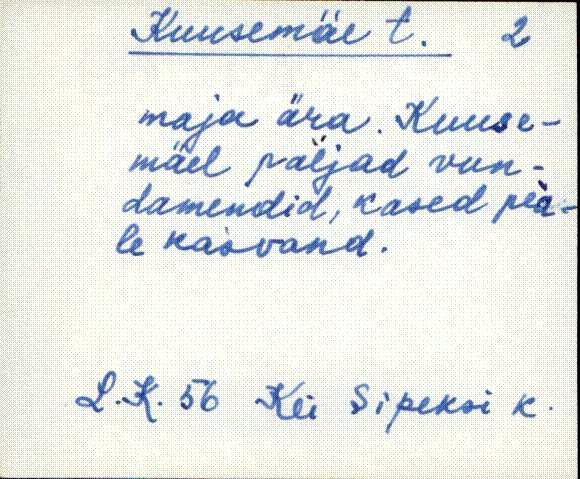 Kuusemäe t. 2
maja ära. Kuuse-
mäel päljad vun-
damendid, kased peä-
le kasvand.
L.K. 56 Kei Sipeksi k.